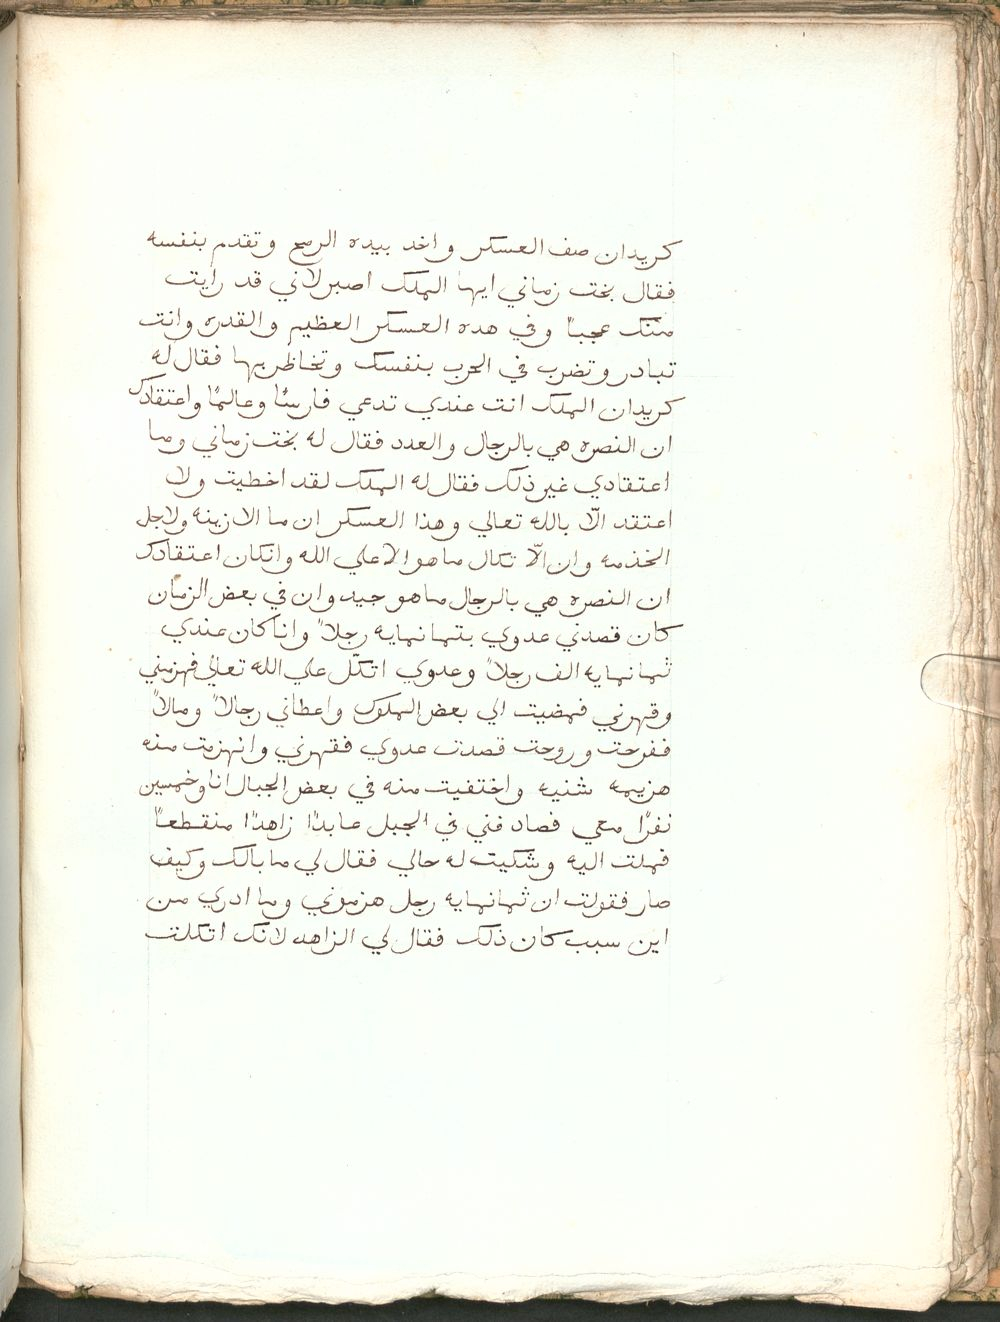 كريدان صف العسكر واخد بيده الرمح وتقدم بنفسه
فقال بخت زماني ايها الملك اصبر لاني قد رايت
منك عجباً وفي هده العسكر العظيم والقدره وانت
تبادر وتضرب في الحرب بنفسك وتخاظر بها فقال له
كريدان الملك انت عندي تدعي فارسًا وعالمًا واعتقادك
ان النصره هي بالرجال والعدد فقال له بخت زماني وما
اعتقادي غير ذلك فقال له الملك لقد اخطيت ولا
اعتقد الّا بالله تعالي وهذا العسكر ان ما الا زينه ولاجل
الخذمه وان الّا تكال ما هو الا علي الله وانكان اعتقادك
ان النصره هي بالرجال ما هو جيد وان في بعض الزمان
كان قصدني عدوي بتمانمايه رجلاً وانا كان عندي
ثمانمايه الف رجلاً وعدوي اتكّل علي الله تعالي فهزمني
وقهرني فمضيت الي بعض الملوك واعطاني رجالاً ومالاً
ففرحت وروحت قصدت عدوي فقهرني وانهزمت منه
هزيمه شنيه واختفيت منه في بعض الجبال انا وخمسين
نفرًا معي فصاد فني في الجبل عابدًا زاهدًا منقطعاً
فملت اليه وشكيت له حالي فقال لي ما بالك وكيف
صار فقولت ان ثمانمايه رجل هزموني وما ادري من
اين سبب كان ذلك فقال لي الزاهد لانك اتكلت